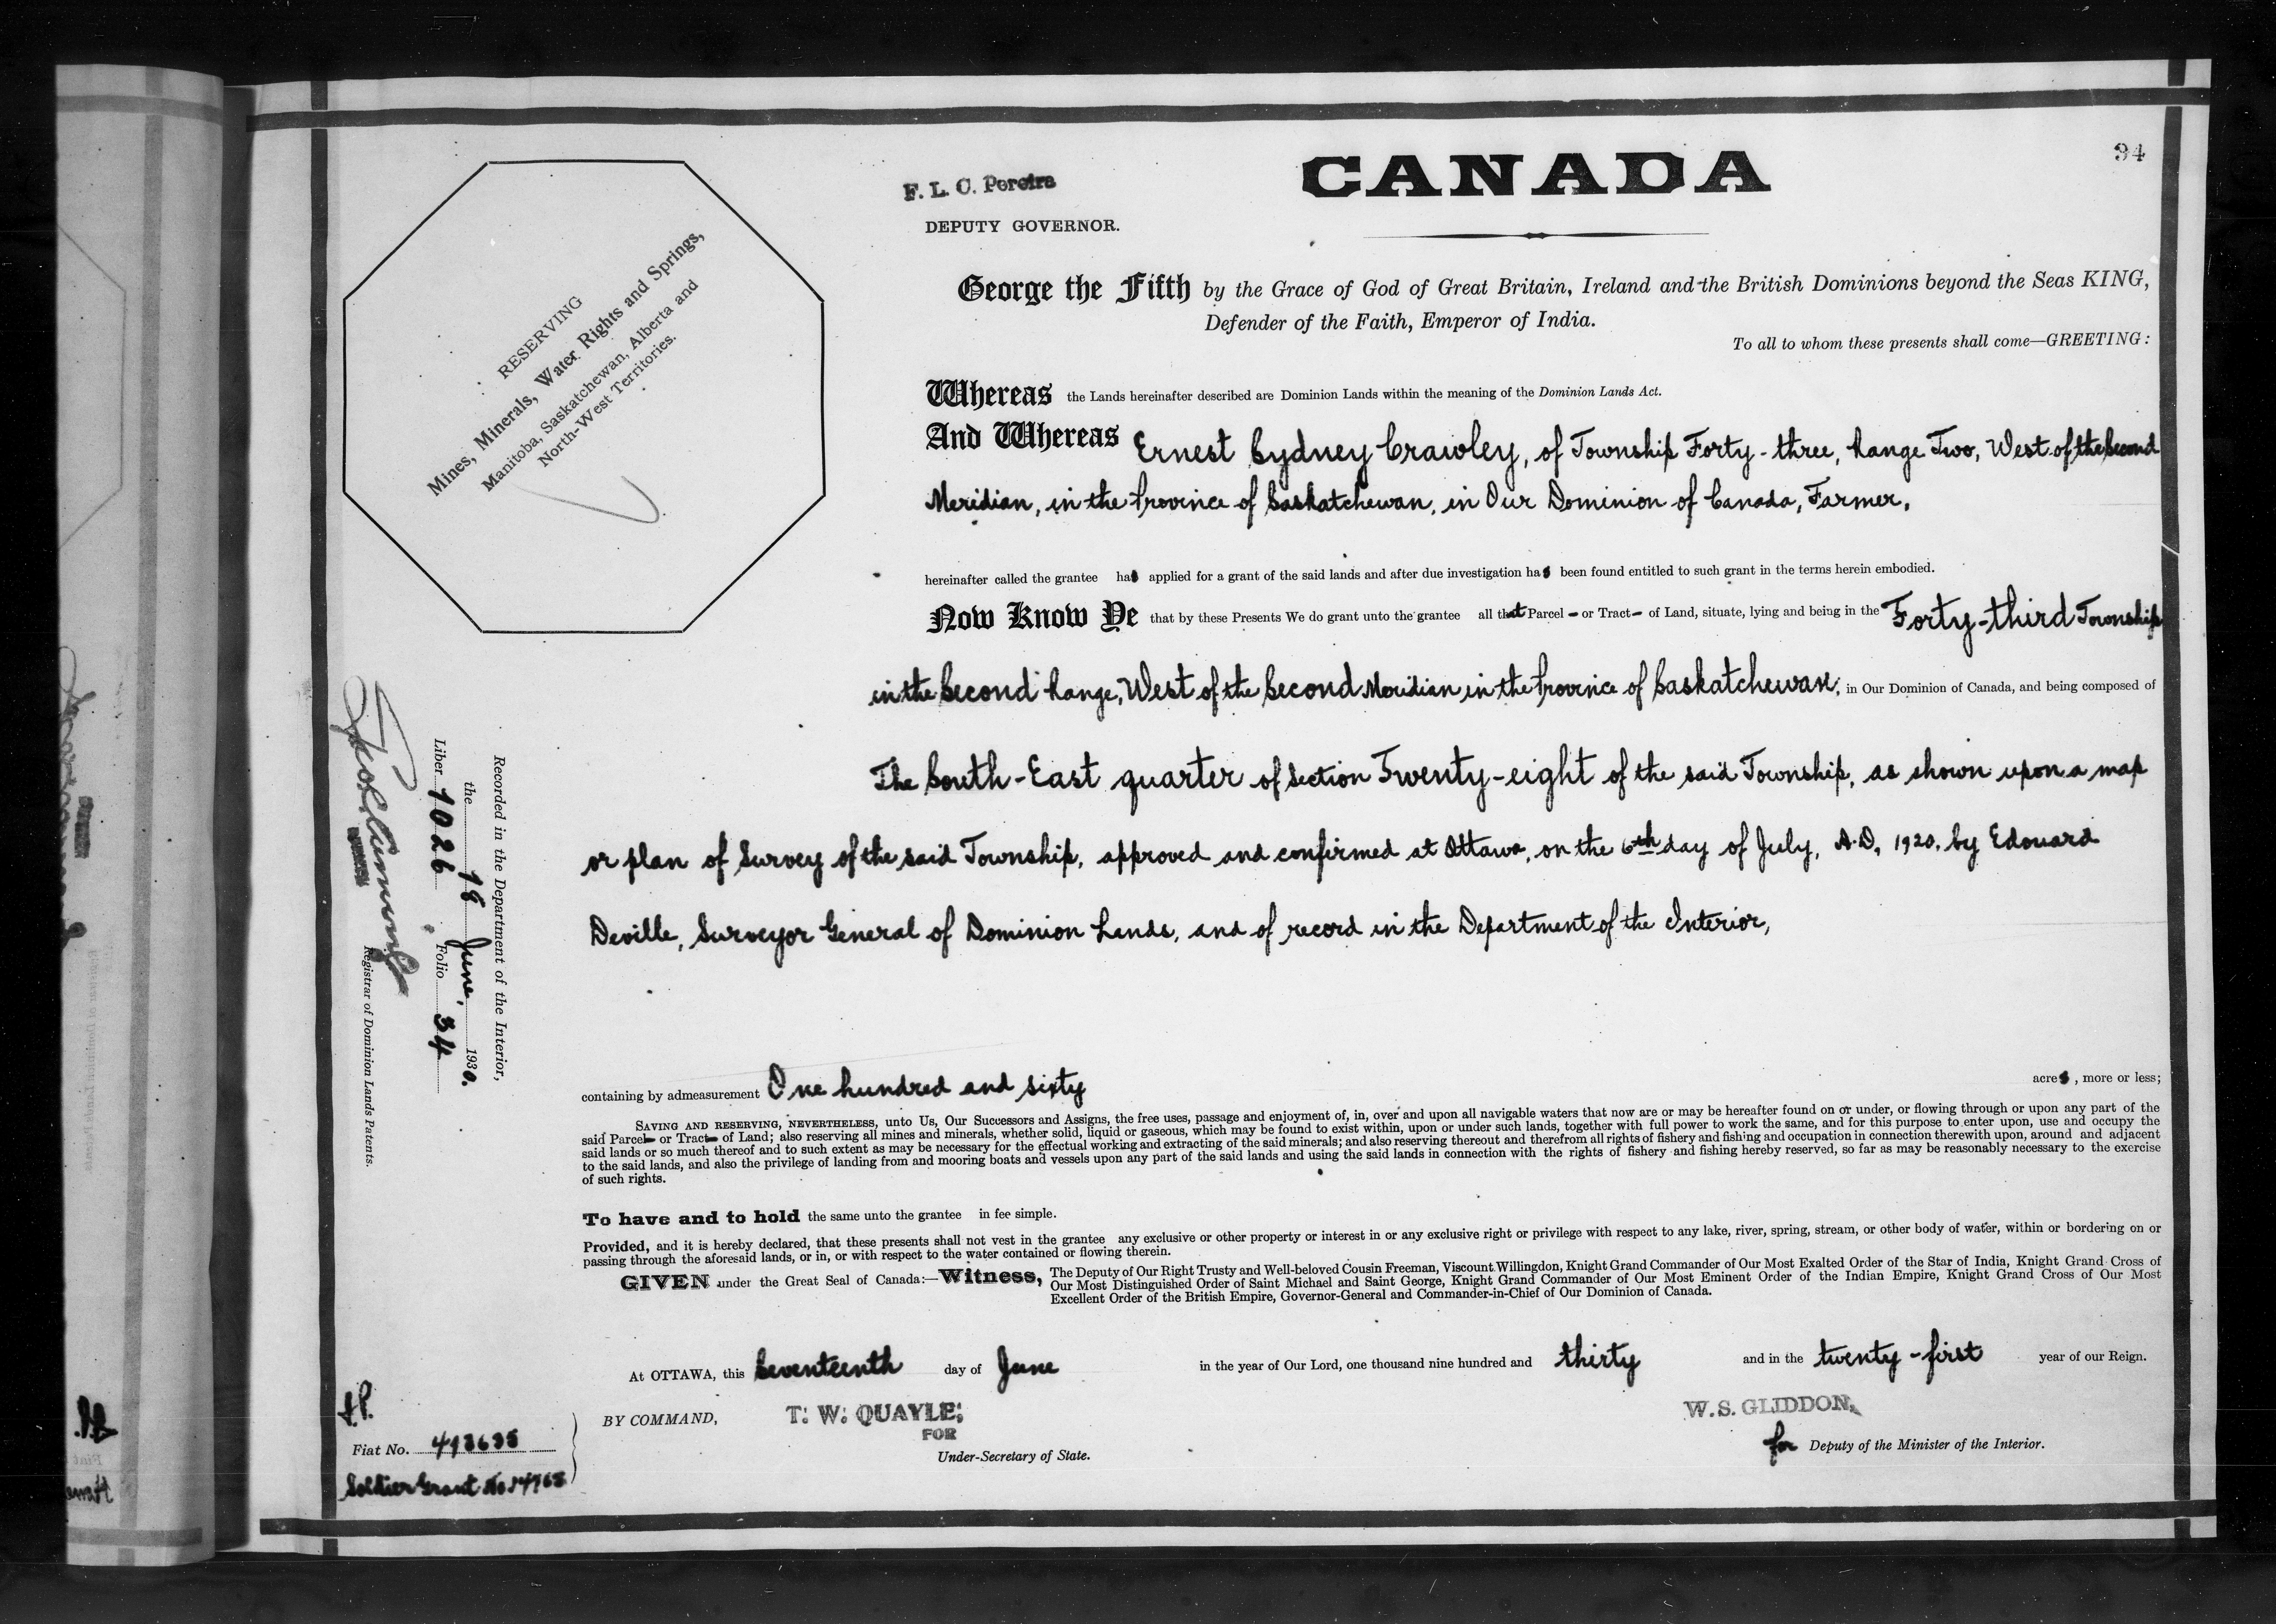 34
CANADA
F. L. C. Pereira
DEPUTY GOVERNOR.
RESERVING
Mines, Minerals, Water Rights and Springs,
Manitoba, Saskatchewan, Alberta and
North-West Territories.
George the Fifth by the Grace of God of Great Britain, Ireland and the British Dominions beyond the Seas KING,
Defender of the Faith, Emperor of India.
To all to whom these presents shall come—GREETING:
Whereas the Lands hereinafter described are Dominion Lands within the meaning of the Dominion Lands Act.
And Whereas Ernest Sydney Crawley, of Township Forty-three, Range Two, West of the Second
Meridian, in the Province of Saskatchewan, in Our Dominion of Canada, Farmer,
hereinafter called the grantee has applied for a grant of the said lands and after due investigation has been found entitled to such grant in the terms herein embodied.
Now Know Ye that by these Presents We do grant unto the grantee all that Parcel - or Tract - of Land, situate, lying and being in the Forty-third Township
in the Second Range, West of the Second Meridian in the Province of Saskatchewan, in Our Dominion of Canada, and being composed of
The South-East quarter of Section Twenty-eight of the said Township, as shown upon a map
or plan of Survey of the said Township, approved and confirmed at Ottawa, on the 6th day of July, A.D. 1920, by Edouard
Deville, Surveyor General of Dominion Lands, and of record in the Department of the Interior,
containing by admeasurement One hundred and sixty acres, more or less;
SAVING AND RESERVING, NEVERTHELESS, unto Us, Our Successors and Assigns, the free uses, passage and enjoyment of, in, over and upon all navigable waters that now are or may be hereafter found on or under, or flowing through or upon any part of the
said Parcel- or Tract- of Land; also reserving all mines and minerals, whether solid, liquid or gaseous, which may be found to exist within, upon or under such lands, together with full power to work the same, and for this purpose to enter upon, use and occupy the
said lands or so much thereof and to such extent as may be necessary for the effectual working and extracting of the said minerals; and also reserving thereout and therefrom all rights of fishery and fishing and occupation in connection therewith upon, around and adjacent
to the said lands, and also the privilege of landing from and mooring boats and vessels upon any part of the said lands and using the said lands in connection with the rights of fishery and fishing hereby reserved, so far as may be reasonably necessary to the exercise
of such rights.
To have and to hold the same unto the grantee in fee simple.
Provided, and it is hereby declared, that these presents shall not vest in the grantee any exclusive or other property or interest in or any exclusive right or privilege with respect to any lake, river, spring, stream, or other body of water, within or bordering on or
passing through the aforesaid lands, or in, or with respect to the water contained or flowing therein.
GIVEN under the Great Seal of Canada:—Witness, The Deputy of Our Right Trusty and Well-beloved Cousin Freeman, Viscount Willingdon, Knight Grand Commander of Our Most Exalted Order of the Star of India, Knight Grand Cross of
Our Most Distinguished Order of Saint Michael and Saint George, Knight Grand Commander of Our Most Eminent Order of the Indian Empire, Knight Grand Cross of Our Most
Excellent Order of the British Empire, Governor-General and Commander-in-Chief of Our Dominion of Canada.
At OTTAWA, this Seventeenth day of June in the year of Our Lord, one thousand nine hundred and thirty and in the twenty-first year of our Reign.
BY COMMAND,
T. W. QUAYLE,
FOR
Under-Secretary of State.
W. S. GLIDDON,
for Deputy of the Minister of the Interior.
Recorded in the Department of the Interior,
the 18 June, 1930.
Liber 1026. Folio 34
Registrar of Dominion Lands Patents.
Fiat No. 413635
Soldier Grant No.